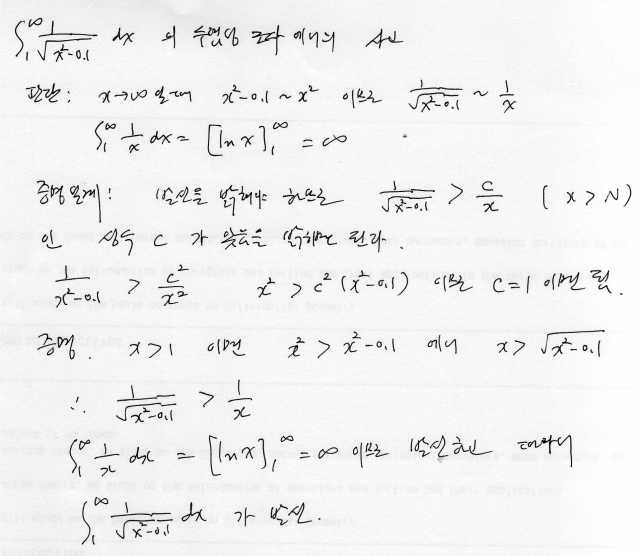 ∫₁^∞ 1/√(x²-0.1) dx 의 수렴
판단: x→∞ 일 때 x²-0.1 ~ x² 이므로 1/√(x²-0.1) ~ 1/x
∫₁^∞ 1/x dx = [ln x]₁^∞ = ∞
증명 : 발산을 밝혀야 하므로 1/√(x²-0.1) > c/x ( x > N )
인 상수 c 가 있음을 밝히면 된다.
1/(x²-0.1) > c²/x² x² > c²(x²-0.1) 이므로 c=1 이면 됨.
증명. x>1 이면 x² > x²-0.1 에서 x > √(x²-0.1)
∴ 1/√(x²-0.1) > 1/x
∫₁^∞ 1/x dx = [ln x]₁^∞ = ∞ 이므로 발산하고 따라서
∫₁^∞ 1/√(x²-0.1) dx 가 발산.